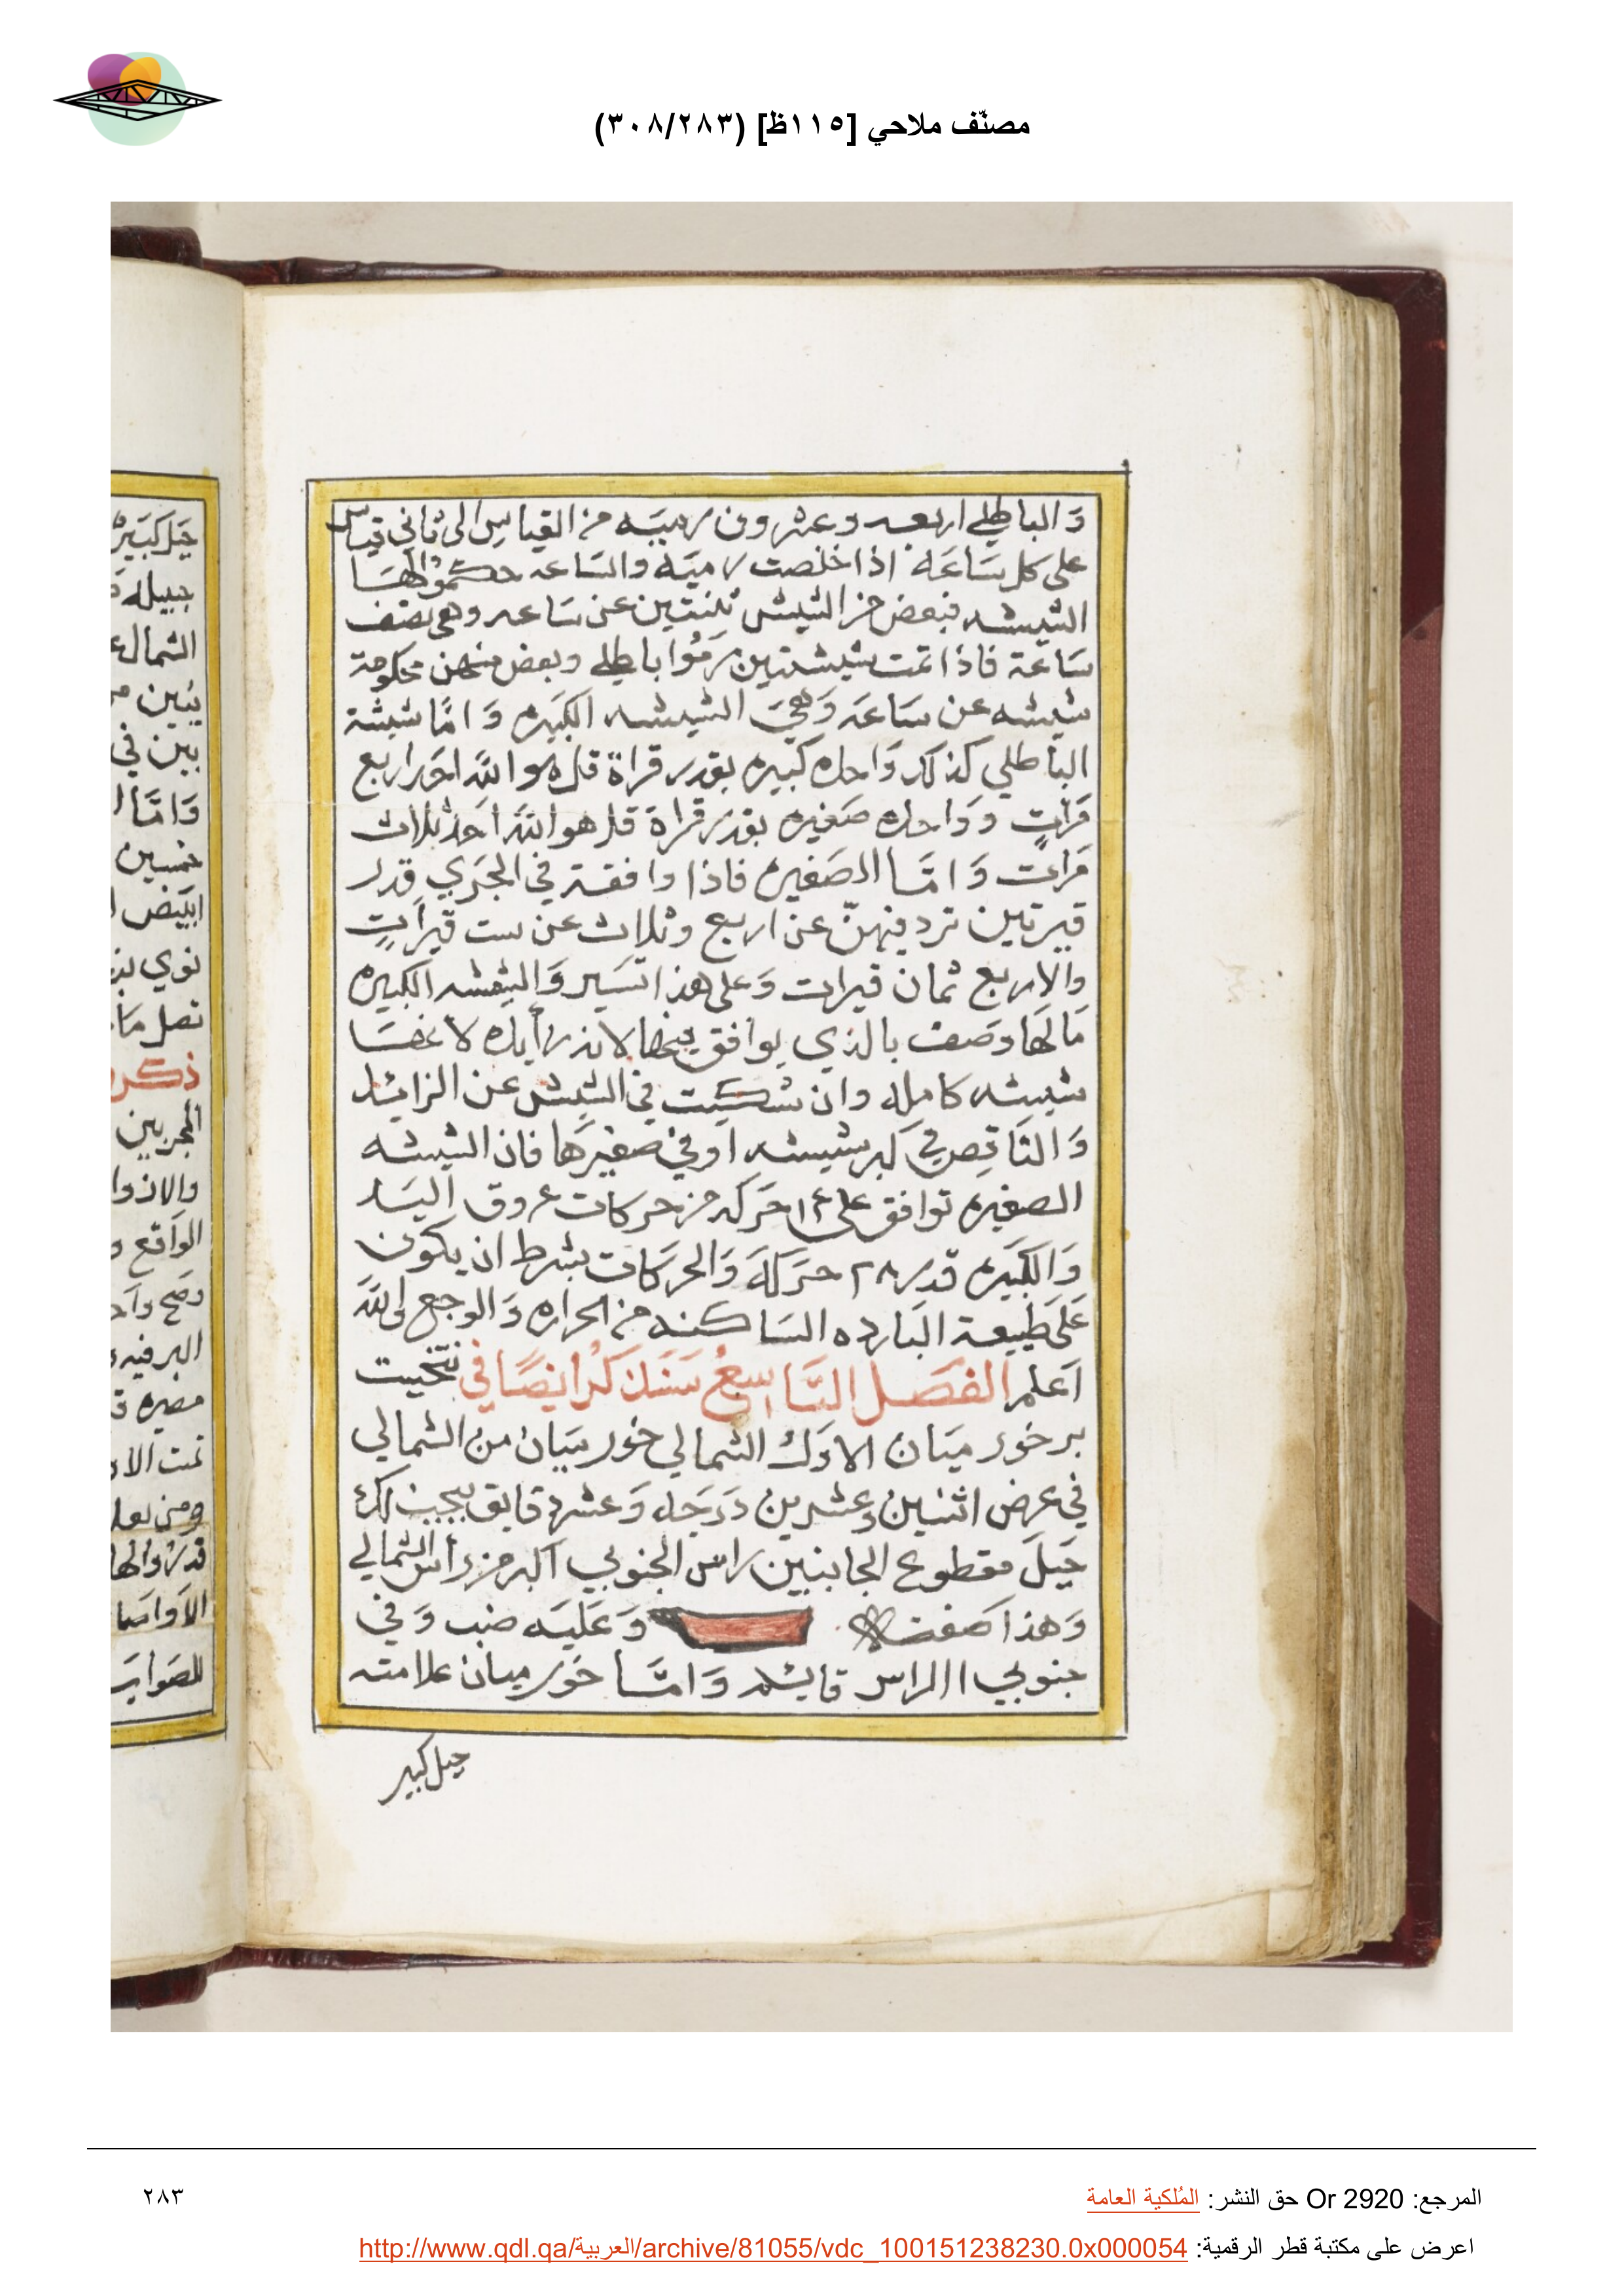 مصنّف ملاحي [١١٥ظ] (٣٠٨/٢٨٣)
وَالباطلي اربعه وعشرون رميَه من القياسِ الى ثاني قياس
على كل سَاعَة اذا خلصت رميَة والسَاعه حكموا لهَا
الشيشه فبعض من الشيش ثنتين عن سَاعه وهي نصف
سَاعَة فاذا تمت شيشتين رَمَوُا باطلي وبعض منهن محكومة
شيشه عن سَاعَه وَهيَ الشيشه الكبَيره وَامَّا شيشة
الباطلي كذلك وَاحده كبيره بقدر قراة قل هو الله احَد اربع
مَراتٍ ووَاحده صَغيره بقدر قراة قل هو الله احَد ثلاث
مَراتٍ وَامَّا الصَغيره فاذا وافقت في الجَري قدر
قيرتين ترد فيهنّ عن اربع وثلاث عن ست قيرَاتٍ
والاربع ثمان قيرات وَعلى هذا تسَير وَالشيشه الكبيره
مَا لهَا وصَف بالذي يوافق
شيشه كامله وان شكيت في الشيش عن الزائد
وَالنَاقِص في كبر شيشه اوفي صغيرَها فان الشيشه
الصغيره توافق على ١٤ حَركه من حركات عروق اليَد
وَالكبَيره قدر ٢٨ حَرَكَة وَالحرَكات بشرط ان يكون
عَلَى طَبيعة البَارده السَاكنه من الحراره وَالوجع والله
اَعلم الفصَل التَّاسِعُ سَنَذكُر ايضًا في نتخيت
بر خور ميَان الاوَل الشمالي خور ميَان من الشمالي
في عرض اثنين وعشرين دَرَجه وَعشر دقايق يجيب لك
جَبلَ مقطوع الجانبين راس الجنوبي اكبر من راس الشمالي
وَهذا صَفته وَعَليَه ضب وَفي
جنوبي الراس قايد وَامَّا خَور ميان علامته
جبل كبير
جَبل كبَيرْ
جبيله
الشمال
يبَين
بين في
وَامَّا
خمسين
ابيَض
نوي
تصل مَا
ذكر
المجربين
والاذوا
الواقع و
وصَح واحد
البر فيه
مصيره
تمت الا
ومن
الاَواصَا
للصَواب
٢٨٣
المرجع: Or 2920 حق النشر: المُلكية العامة
اعرض على مكتبة قطر الرقمية: http://www.qdl.qa/العربية/archive/81055/vdc_100151238230.0x000054